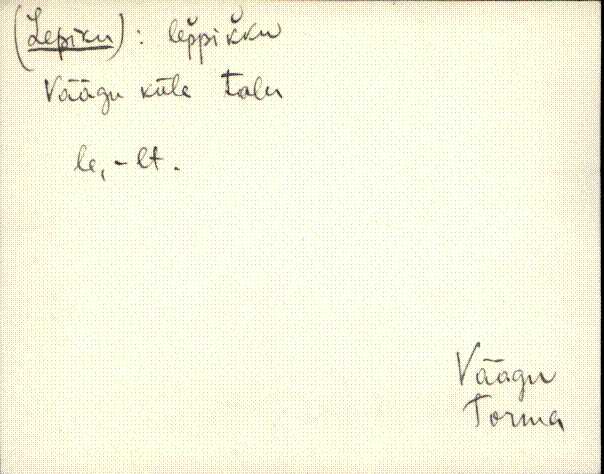 (Lepiku) : lep̆pik̆ku
Väägu küla talu
le, -lt.
Väägu
Torma